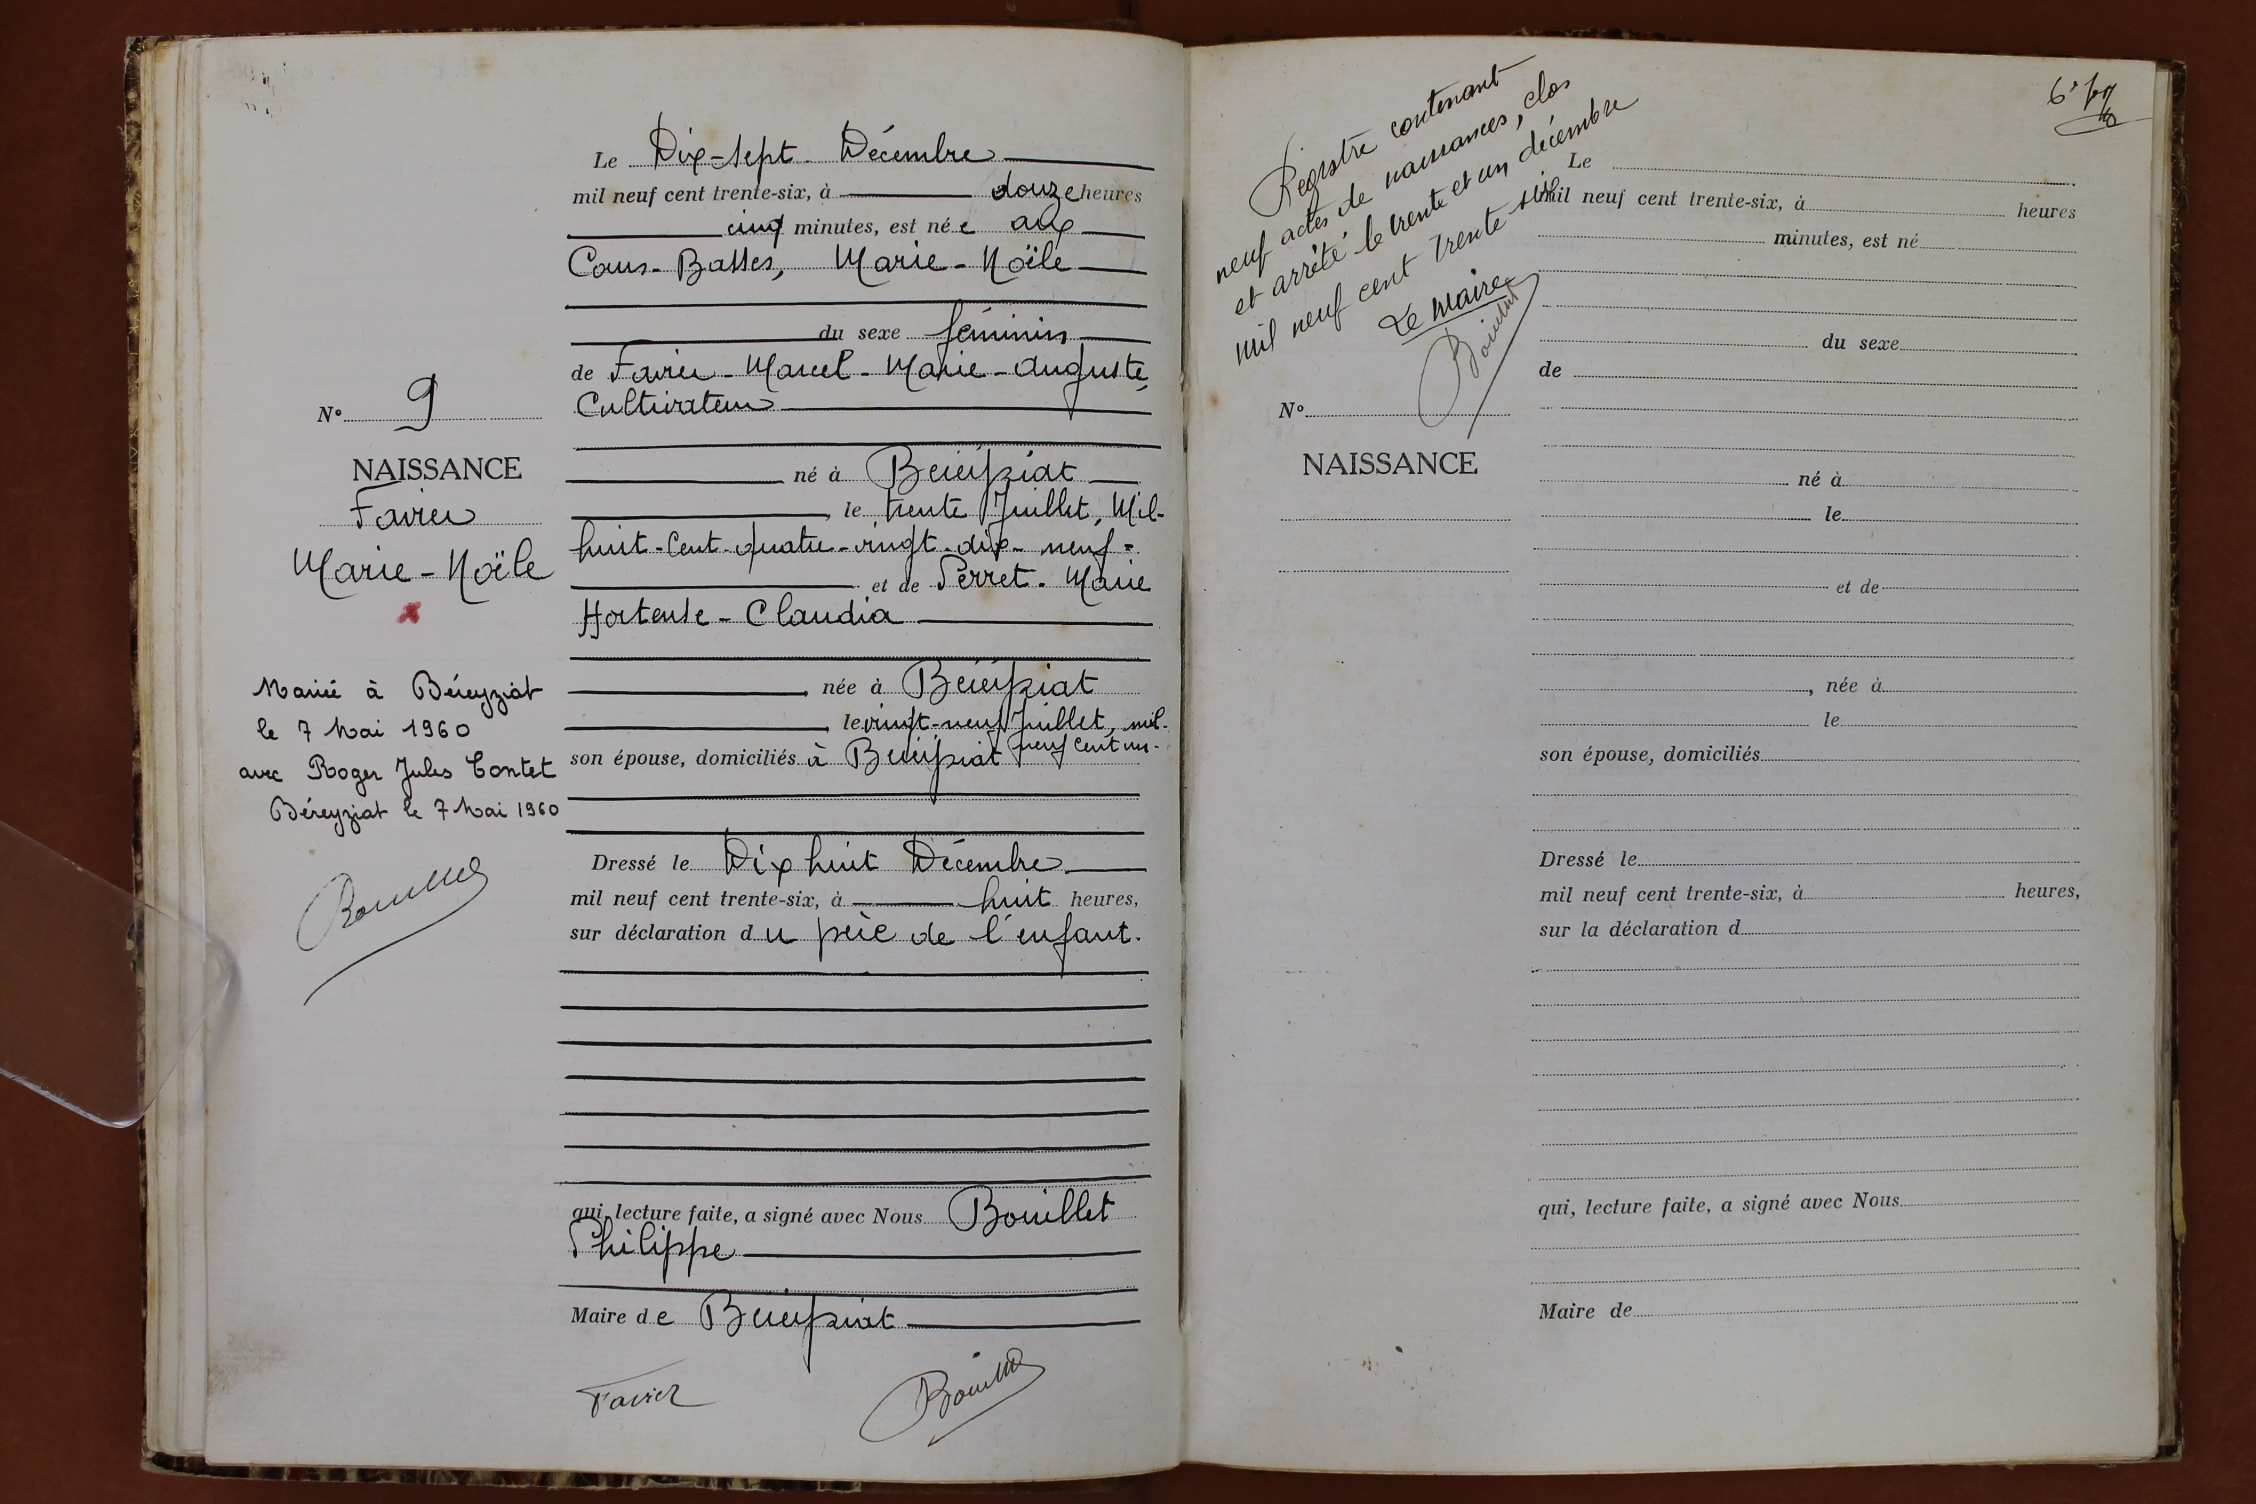 Le Dix-sept Décembre
mil neuf cent trente-six, à douze heures
cinq minutes, est née aux
Cours-Basses, Marie-Noële
du sexe féminin
de Favier-Marcel-Marie-Auguste,
Cultivateur
né à Béréyziat
, le trente Juillet, Mil-
huit-cent-quatre-vingt-dix-neuf-
et de Perret. Marie
Hortense-Claudia
, née à Béréyziat
, le vingt-neuf Juillet, mil-
neuf cent un-
son épouse, domiciliés à Béréyziat
Dressé le Dix huit Décembre
mil neuf cent trente-six, à huit heures,
sur déclaration du père de l'enfant.
qui, lecture faite, a signé avec Nous Bouillet
Philippe
Maire de Béréyziat
Favier
Bouillet
N° 9
NAISSANCE
Favier
Marie-Noële
Marié à Béreyziat
le 7 Mai 1960
avec Roger Jules Contet
Béreyziat le 7 Mai 1960
Bouillet
Registre contenant
neuf actes de naissances, clos
et arrêté le trente et un décembre
mil neuf cent trente six
Le Maire
Bouillet
N°
NAISSANCE
Le
mil neuf cent trente-six, à heures
minutes, est né
du sexe
de
né à
le
et de
, née à
le
son épouse, domiciliés
Dressé le
mil neuf cent trente-six, à heures,
sur la déclaration d
qui, lecture faite, a signé avec Nous
Maire de